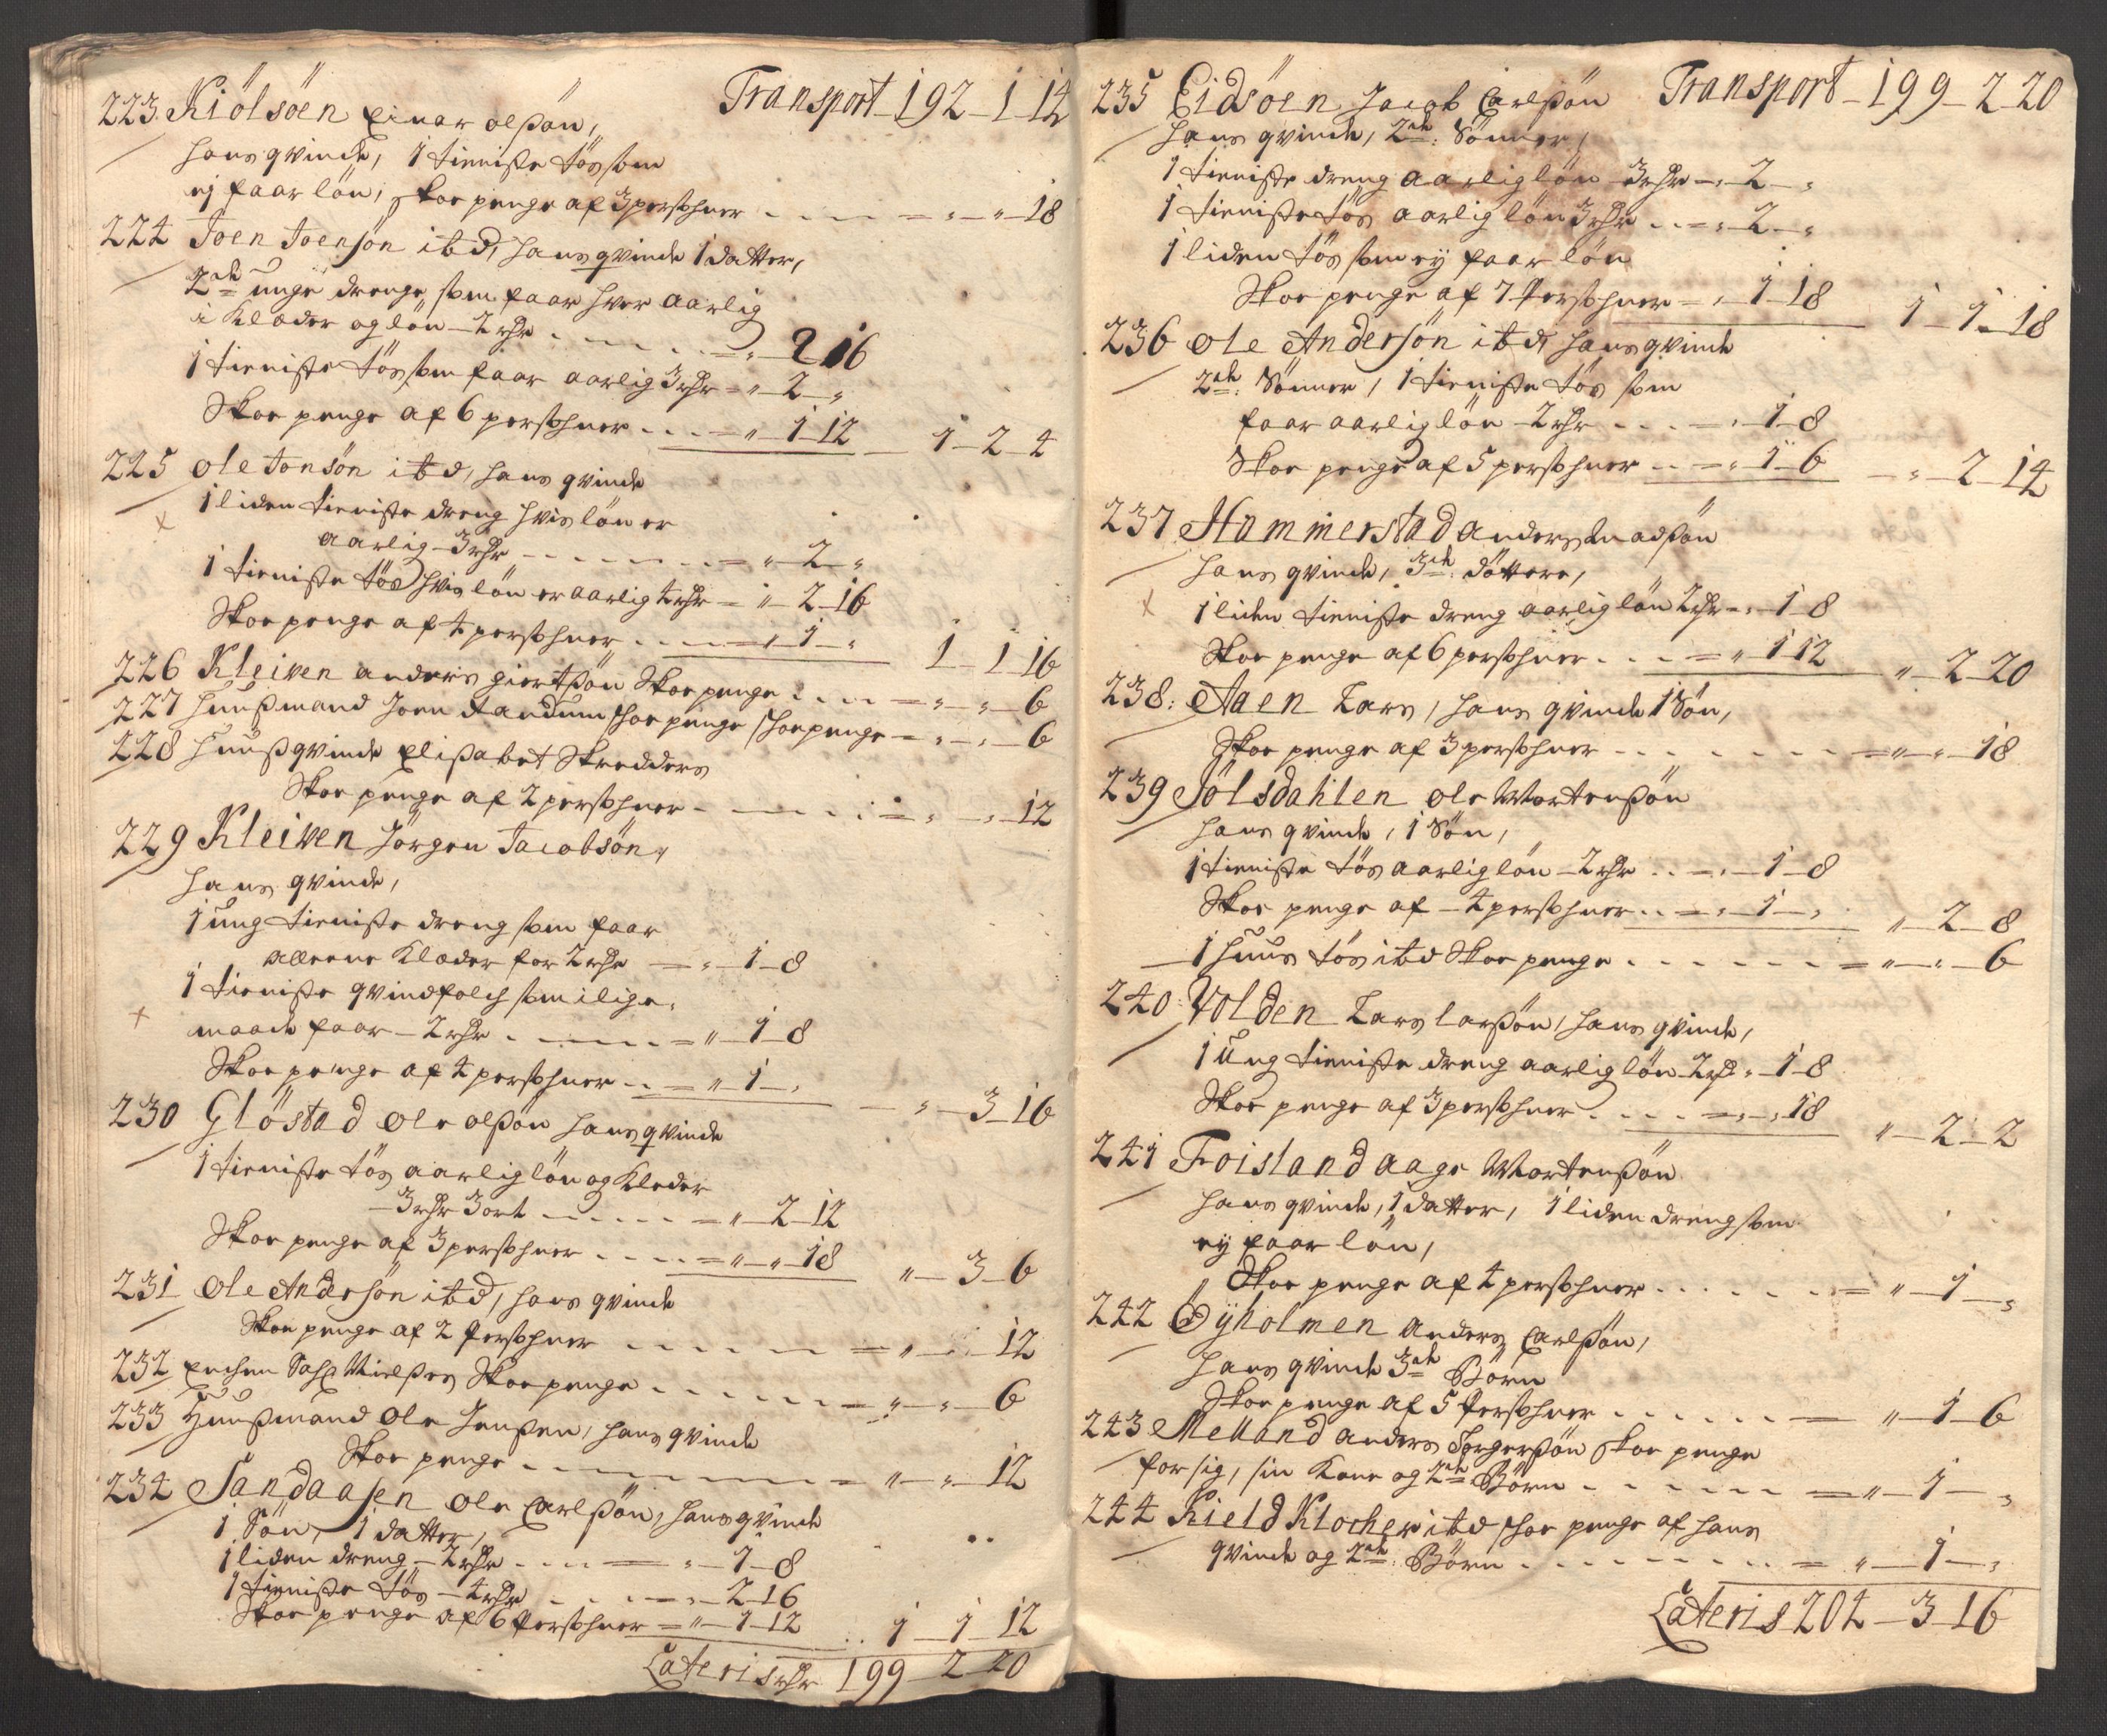 Transport 192 - 1 - 14
223 Kiölsöen Einar olßön,
hans qvinde, 1 tieniste tös som
ej faar lön, Skoe penge af 3 persohner - " - " - 18
224 Joen Joensön ibd, hans qvinde 1 datter,
2de unge drenge, som faar hver aarlig
i Klæder og lön - 2 rdr - " - 2 16
1 tieniste tös som faar aarlig 3 rdr - " - 2 - "
Skoe penge af 6 persohner - " - 1 - 12 - 1 - 2 - 4
225 Ole Jonsön ibd, hans qvinde
1 liden tieniste dreng hvis lön er
aarlig - 3 rdr - " - 2 - "
1 tieniste tös hvis lön er aarlig 4 rdr - " - 2 - 16
Skoe penge af 4 persohner - " - 1 - " 1 - 1 - 16
226 Kleiven anders giertßön Skoe penge - " - " - 6
227 huußmand Joen Aandum skoe penge skoe penge - " - " - 6
228 huußqvinde Elisabet Skredders
Skoe penge af 2 persohner - " - " - 12
229 Kleiven Jörgen Jacobsön,
hans qvinde,
1 ung tieniste dreng som faar
alleene Klæder for 2 rdr - " - 1 - 8
1 tieniste qvindfolch som i lige
maade faar - 2 rdr - " - 1 - 8
Skoe penge af 4 persohner - " - 1 - " - " - 3 - 16
230 Glöstad Ole olßön hans qvinde
1 tieniste tös aarlig lön og Kleder
3 rdr 3 ort - " - 2 - 12
Skoe penge af 3 persohner - " - " - 18 " - 3 - 6
231 Ole Andersön ibd, hans qvinde
Skoe penge af 2 Persohner - " - " - 12
232 Enchen Skoe penge - " - " - 6
233 Huußmand Ole Jenßen, hans qvinde
Skoe penge - " - " - 12
234 Sandaasen Ole Carlßön, hans qvinde
1 Sön, 1 datter,
1 liden dreng - 2 rdr - " - 1 - 8
1 tieniste tös - 4 rdr - " - 2 - 16
Skoe penge af 6 Persohner - " - 1 - 12 1 - 1 - 12
Lateris rdr 199 - 2 - 20
Transport - 199 - 2 - 20
235 Eidsöen Jacob Carlßön
hans qvinde, 2de Sönner,
1 tieniste dreng aarlig lön 3 rdr - " - 2 - "
1 tieniste tös aarlig lön 3 rdr - " - 2 - "
1 liden tös som ey faar lön
Skoe penge af 7 Persohner - " 1 - 18 1 - 1 - 18
236 Ole Andersön ibd, hans qvinde
2de Sönner, 1 tieniste tös som
faar aarlig lön - 2 rdr - " - 1 - 8
Skoe penge af 5 persohner - " 1 - 6 - " - 2 - 14
237 Hammerstad anders Madßön
hans qvinde, 3de döttere,
1 liden tieniste dreng aarlig lön 2 rdr - " - 1 - 8
Skoe penge af 6 persohner - " 1 12 " - 2 - 20
238: Aaen Lars, hans qvinde 1 Sön,
Skoe penge af 3 persohner - " - " - 18
239 Jölsdahlen Ole Mortenßön
hans qvinde, 1 Sön,
1 tieniste tös aarlig lön - 2 rdr - " - 1 - 8
Skoe penge af - 4 persohner - " - 1 - " " - 2 - 8
1 huus tös ibd Skoe penge - " - " - 6
240: Volden Lars larßön, hans qvinde,
1 Ung tieniste dreng aarlig lön 2 rdr " - 1 - 8
Skoe penge af 3 persohner - " - " 18 " - 2 - 2
241 Foisland aage Mortenßön
hans qvinde, 1 datter, 1 liden dreng som
ey faar lön,
Skoe penge af 4 persohner - " - 1 - "
242 Öyholmen Anders Carlßön,
hans qvinde 3de Börn
Skoe penge af 5 Persohner - " - 1 - 6
243 Melland anders Torgerßön skoe penge
for sig, sin Kone og 2de Börn - " - 1 - "
244 Kield Klocher ibd skoe penge af hans
qvinde og 2de Börn - " - 1 - "
Lateris 204 - 3 - 16